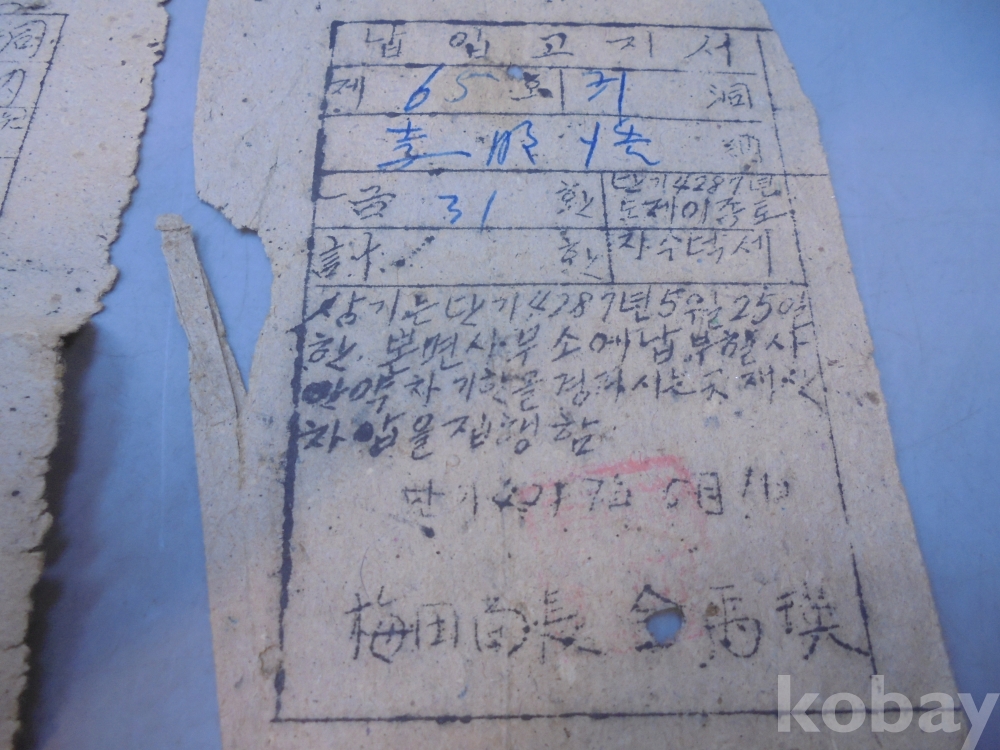 납입고지서
제 65 호 귀 洞
納
금 31 환
단기4287년
도제이종도
計 환
자수덕세
상기는단기4287년5월25일
한. 본면사무소에납부할사
만약차기한을경과시는
차압을집행함
단기 4287년 5月
梅田面長 金
kobay
洞